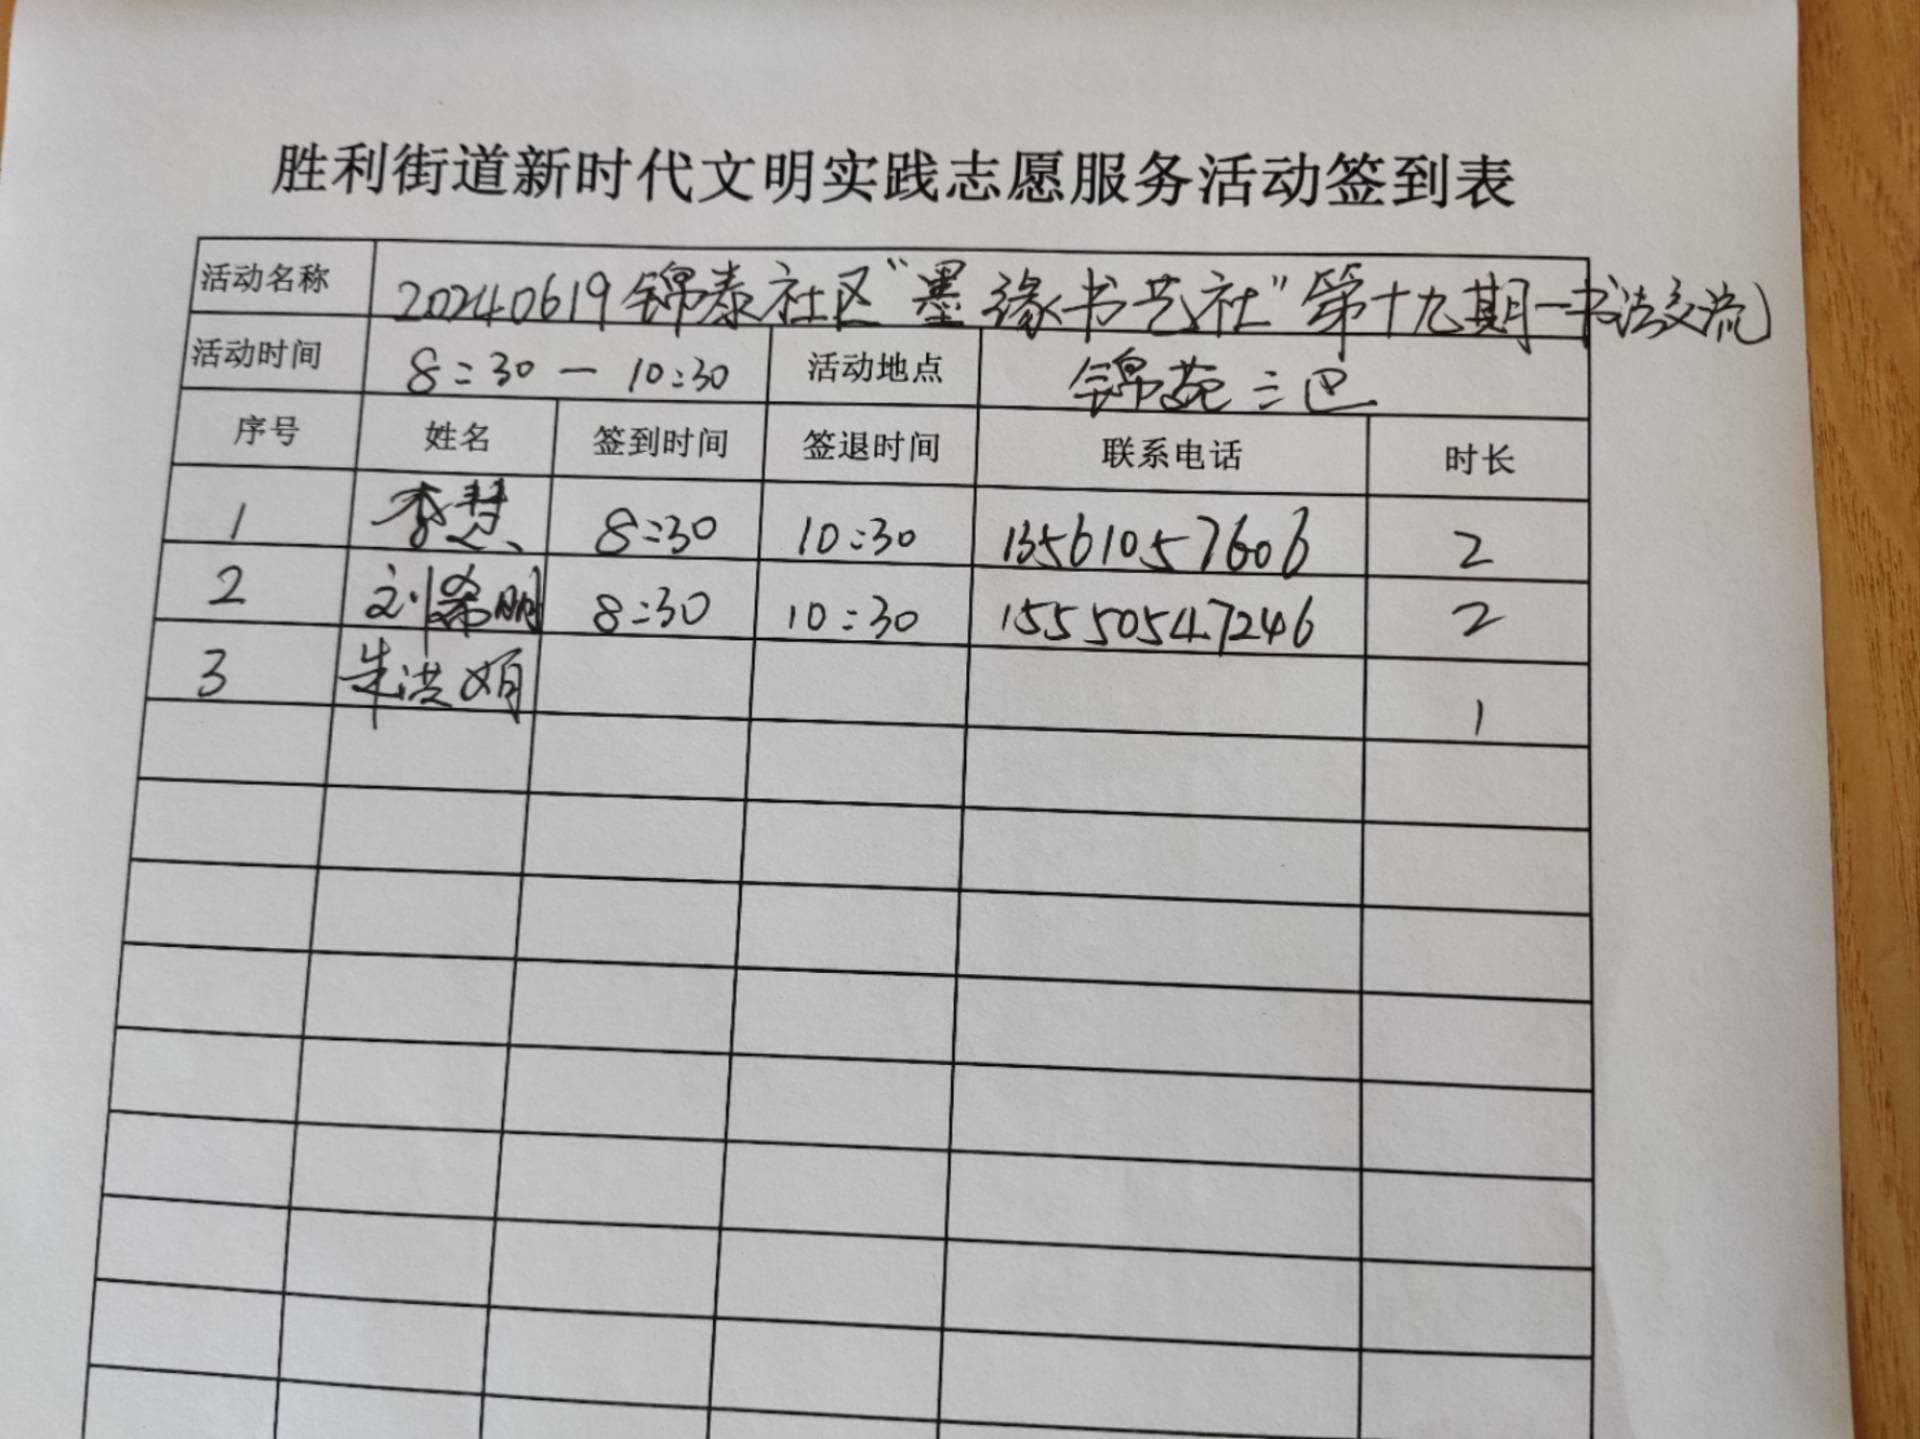 胜利街道新时代文明实践志愿服务活动签到表
活动名称 20240619锦泰社区“墨缘书艺社”第十九期一书法交流
活动时间 8:30—10:30 活动地点 锦苑三区
序号 姓名 签到时间 签退时间 联系电话 时长
1 李慧 8:30 10:30 13561057606 2
2 刘希明 8:30 10:30 15550547246 2
3 朱洪娟 1